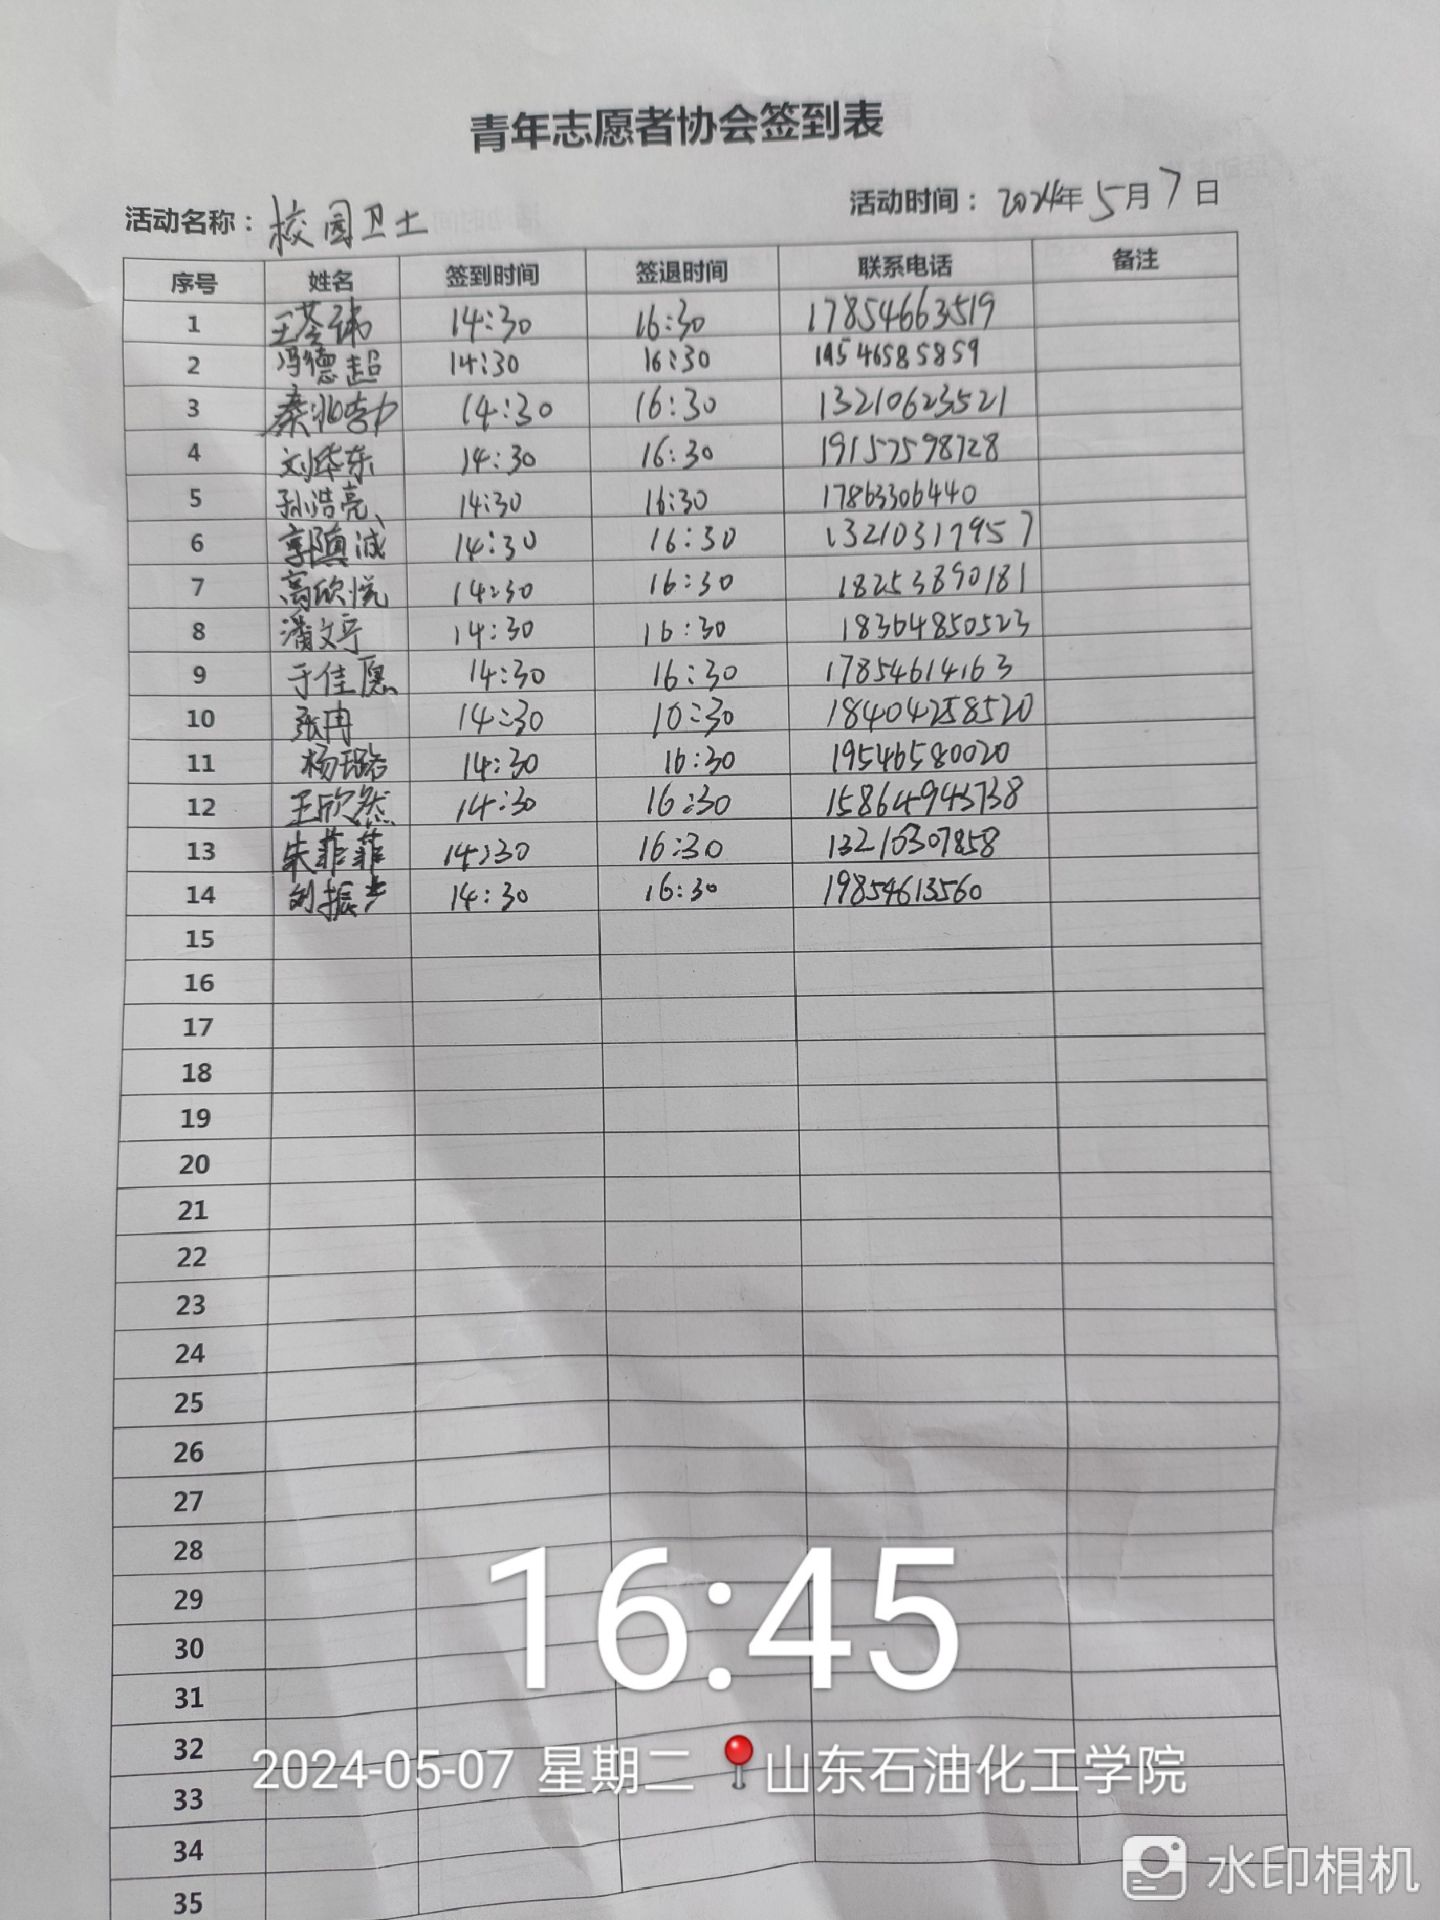 青年志愿者协会签到表
活动名称：校园卫士 活动时间：2024年5月7日
序号 姓名 签到时间 签退时间 联系电话 备注
1 14:30 16:30 17854663519
2 冯德超 14:30 16:30 19546585859
3 14:30 16:30 13210623521
4 刘华东 14:30 16:30 19157598728
5 孙浩亮 14:30 16:30 17863306440
6 14:30 16:30 13210317957
7 高欣悦 14:30 16:30 18253890181
8 潘文宁 14:30 16:30 18364850523
9 于佳愿 14:30 16:30 17854614163
10 张冉 14:30 16:30 18404258520
11 杨璐 14:30 16:30 19546580020
12 王欣然 14:30 16:30 15864943738
13 朱菲菲 14:30 16:30 13210307858
14 14:30 16:30 19854613560
15
16
17
18
19
20
21
22
23
24
25
26
27
28
29
30
31
32
33
34
35
16:45
2024-05-07 星期二 山东石油化工学院
水印相机